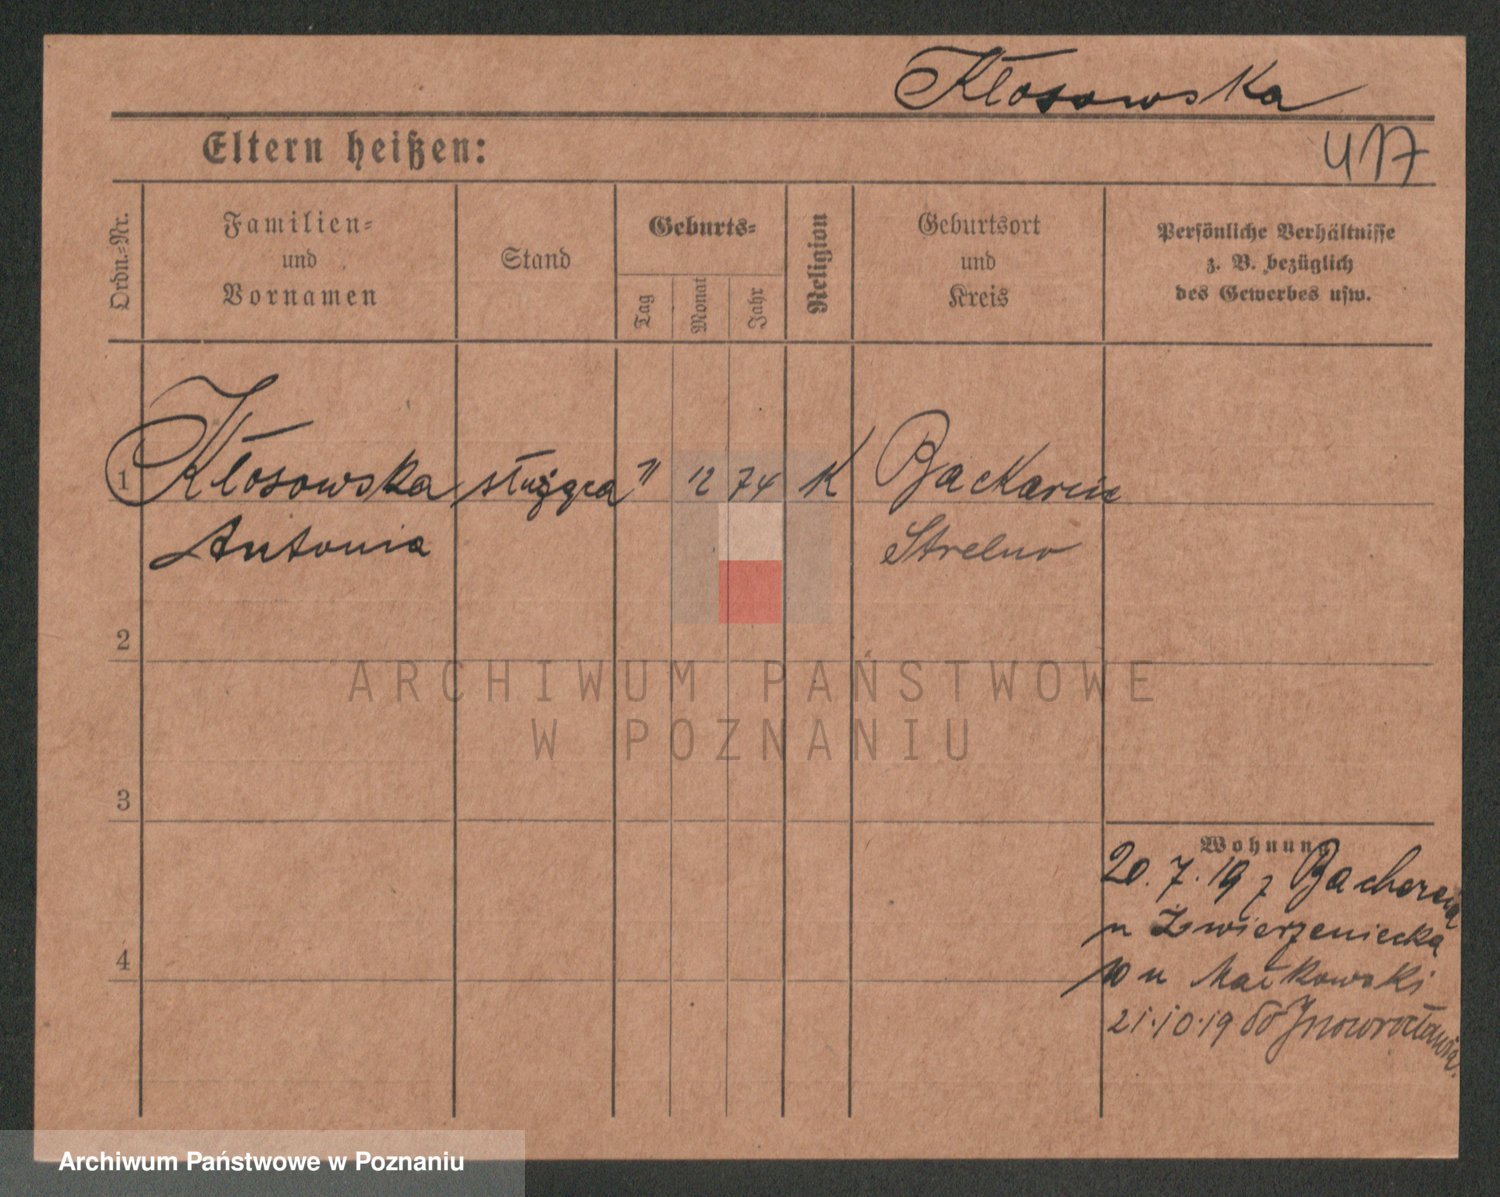 Kłosowska
417
Eltern heißen:
Ordn.-Nr.
Familien-
und
Vornamen
Stand
Geburts-
Tag
Monat
Jahr
Religion
Geburtsort
und
Kreis
Persönliche Verhältnisse
z. B. bezüglich
des Gewerbes usw.
1 Kłosowska służąca 12 74 K
Antonia Strelno
2
ARCHIWUM PAŃSTWOWE
W POZNANIU
3
Wohnung
20.7.19 z
u Zwierzeniecka
10 u Małkowski
4
21.10.19 do Inowrocławia.
Archiwum Państwowe w Poznaniu